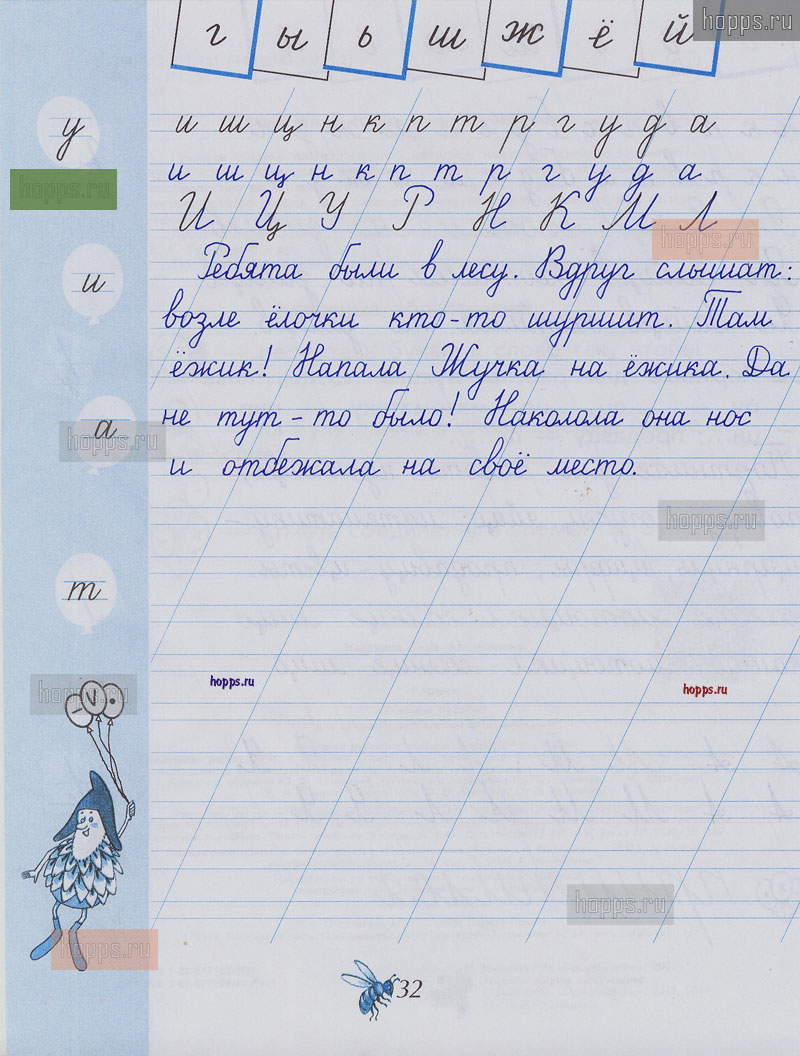 г ы ь ш ж ё й
hopps.ru
у
и ш щ н к п т р г у д а
hopps.ru
и ш щ н к п т р г у д а
И Ц У Р Н К М Л
hopps.ru
Ребята были в лесу. Вдруг слышат:
и
возле ёлочки кто-то шуршит. Там
ёжик! Напала Жучка на ёжика. Да
а
hopps.ru
не тут-то было! Наколола она нос
и отбежала на своё место.
hopps.ru
т
hopps.ru
hopps.ru
hopps.ru
hopps.ru
hopps.ru
32